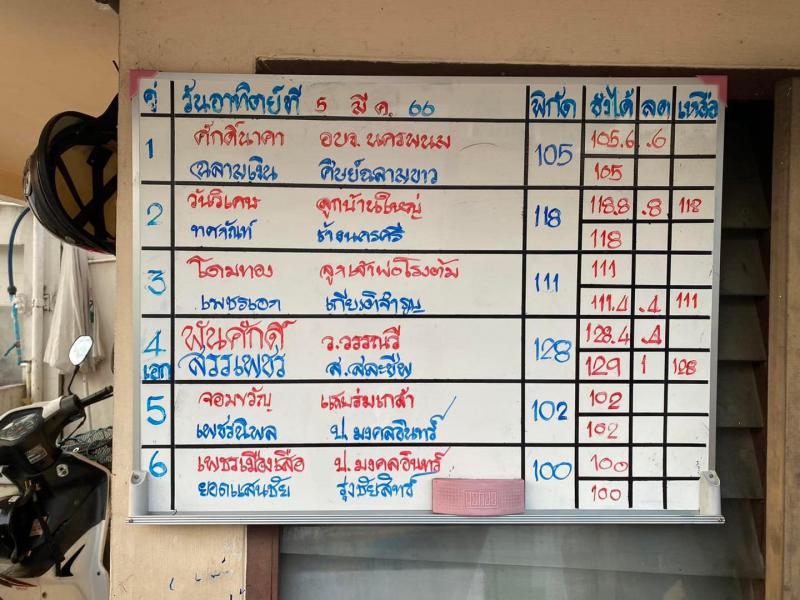 คู่ วันอาทิตย์ที่ 5 มี.ค. 66 พิกัด ชั่งได้ ลด เหลือ
1 ศักดิ์นาคา อบจ. นครพนม 105 105.6 .6
ฉลามเงิน ศิษย์ฉลามขาว 105
2 วันวิเศษ ลูกบ้านใหญ่ 118 118.8 .8 118
ทศกัณฑ์ ช้างนครศรี 118
3 โดมทอง ลูกเจ้าพ่อโรงต้ม 111 111
เพชรเอก 111.4 .4 111
4 พันศักดิ์ ว.วรรณวี 128 128.4 .4
เอก สรรเพชร ส.สละชีพ 129 1 128
5 จอมขวัญ แสบร่มเกล้า 102 102
เพชรนิพล ป.มงคลอินทร์ 102
6 เพชรเมืองเสือ ป.มงคลอินทร์ 100 100
ยอดแสนชัย รุ่งชัยสิทธิ์ 100